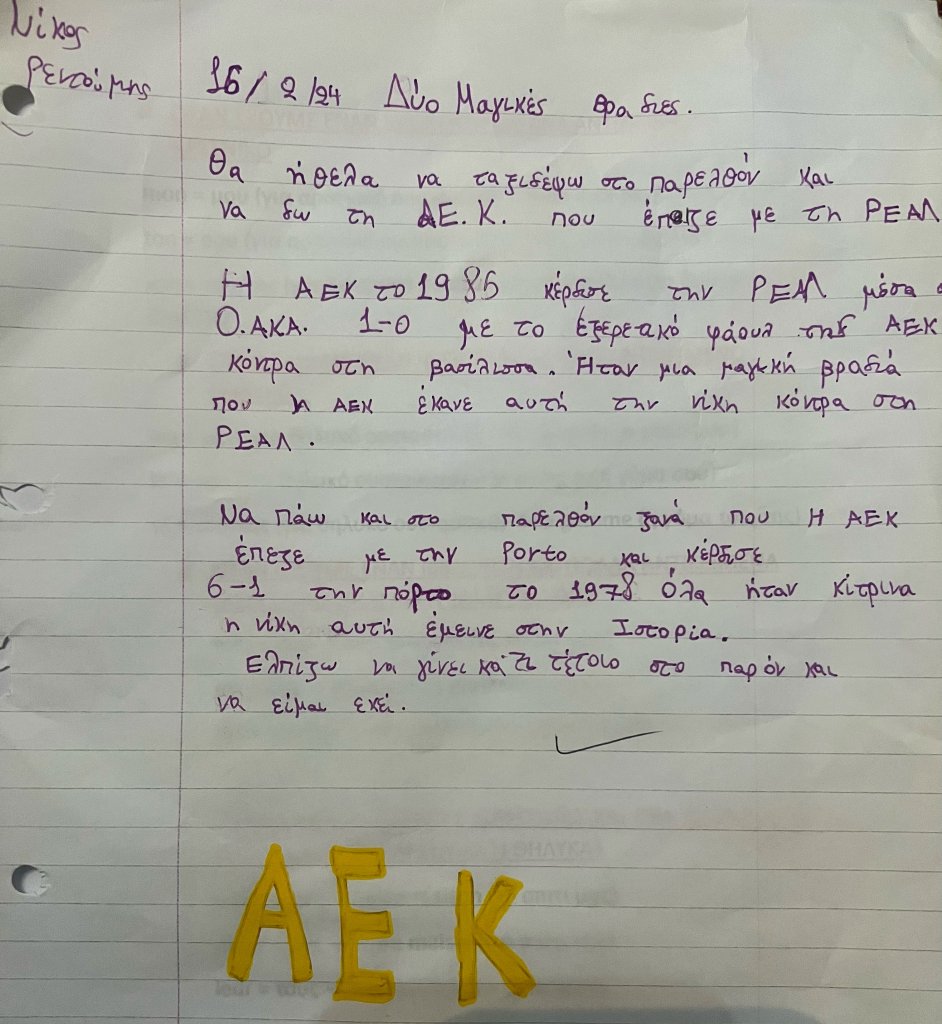 Νίκος
Ρεντούμης
16/2/24 Δύο Μαγικές βραδιες.
Θα ήθελα να ταξιδέψω στο παρελθόν και
να δω τη ΑΕ.Κ. που έπαιζε με τη ΡΕΑΛ
Η ΑΕΚ το 1986 κέρδισε την ΡΕΑΛ μέσα σ
Ο.ΑΚΑ. 1-0 με το εξερετικό φάουλ της ΑΕΚ
κόντρα στη βασίλισσα. Ήταν μια μαγική βραδιά
που η ΑΕΚ έκανε αυτή την νίκη κόντρα στη
ΡΕΑΛ.
Να πάω και στο παρελθόν ξανά που Η ΑΕΚ
έπεζε με την Porto και κέρδισε
6-1 την πόρτο το 1978 όλα ήταν κίτρινα
η νίκη αυτή έμεινε στην Ιστορία.
Ελπίζω να γίνει κάτι τέτοιο στο παρόν και
να είμαι εκεί.
ΑΕΚ